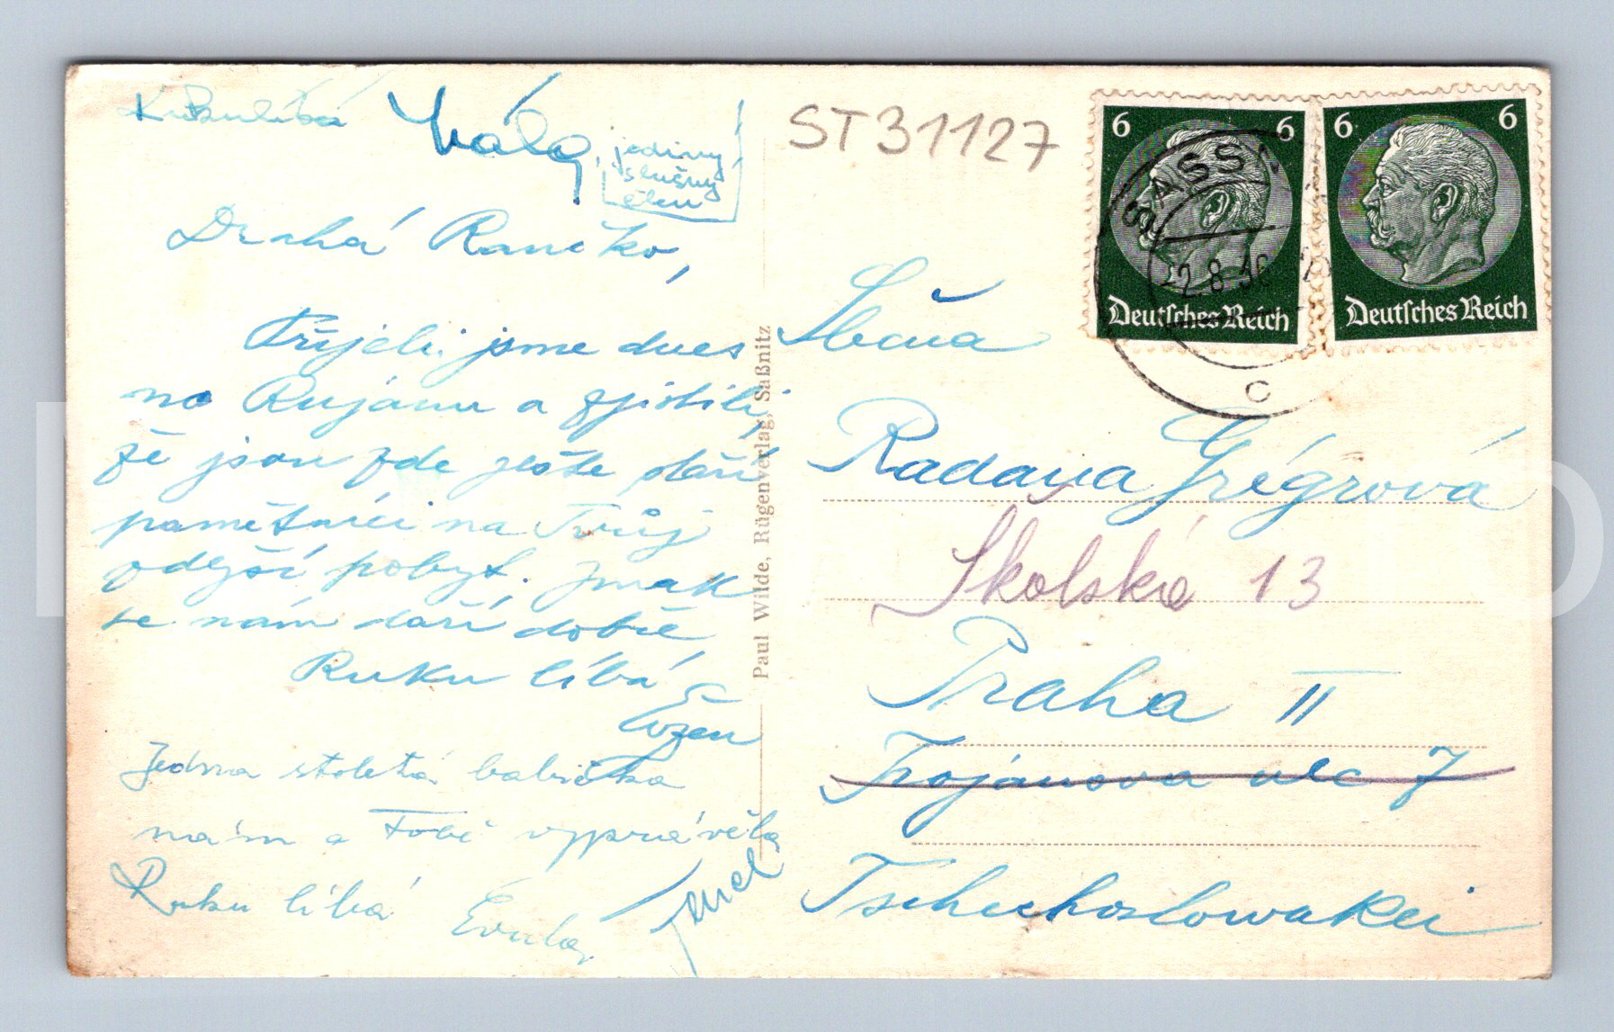 Válo, jediný
slušný
člen!
Drahá Raničko,
Přijeli jsme dnes
na Rujánu a zjistili
že jsou zde ješte staří
pamětníci na Tvůj
zdejší pobyt. Jinak
se nám daří dobře
Ruku líbá
Evžen
Jedna stoletá babička
nám o Tobě vyprávěla
Ruku líbá
ST31127
6 6
Deutsches Reich
6 6
Deutsches Reich
SASSN
2.8.36
c
Slečna
Radana Grégrová
Školská 13
Praha II
Trojanova ulc 7
Tschechoslowakei
Paul Wilde, Rügenverlag, Saßnitz